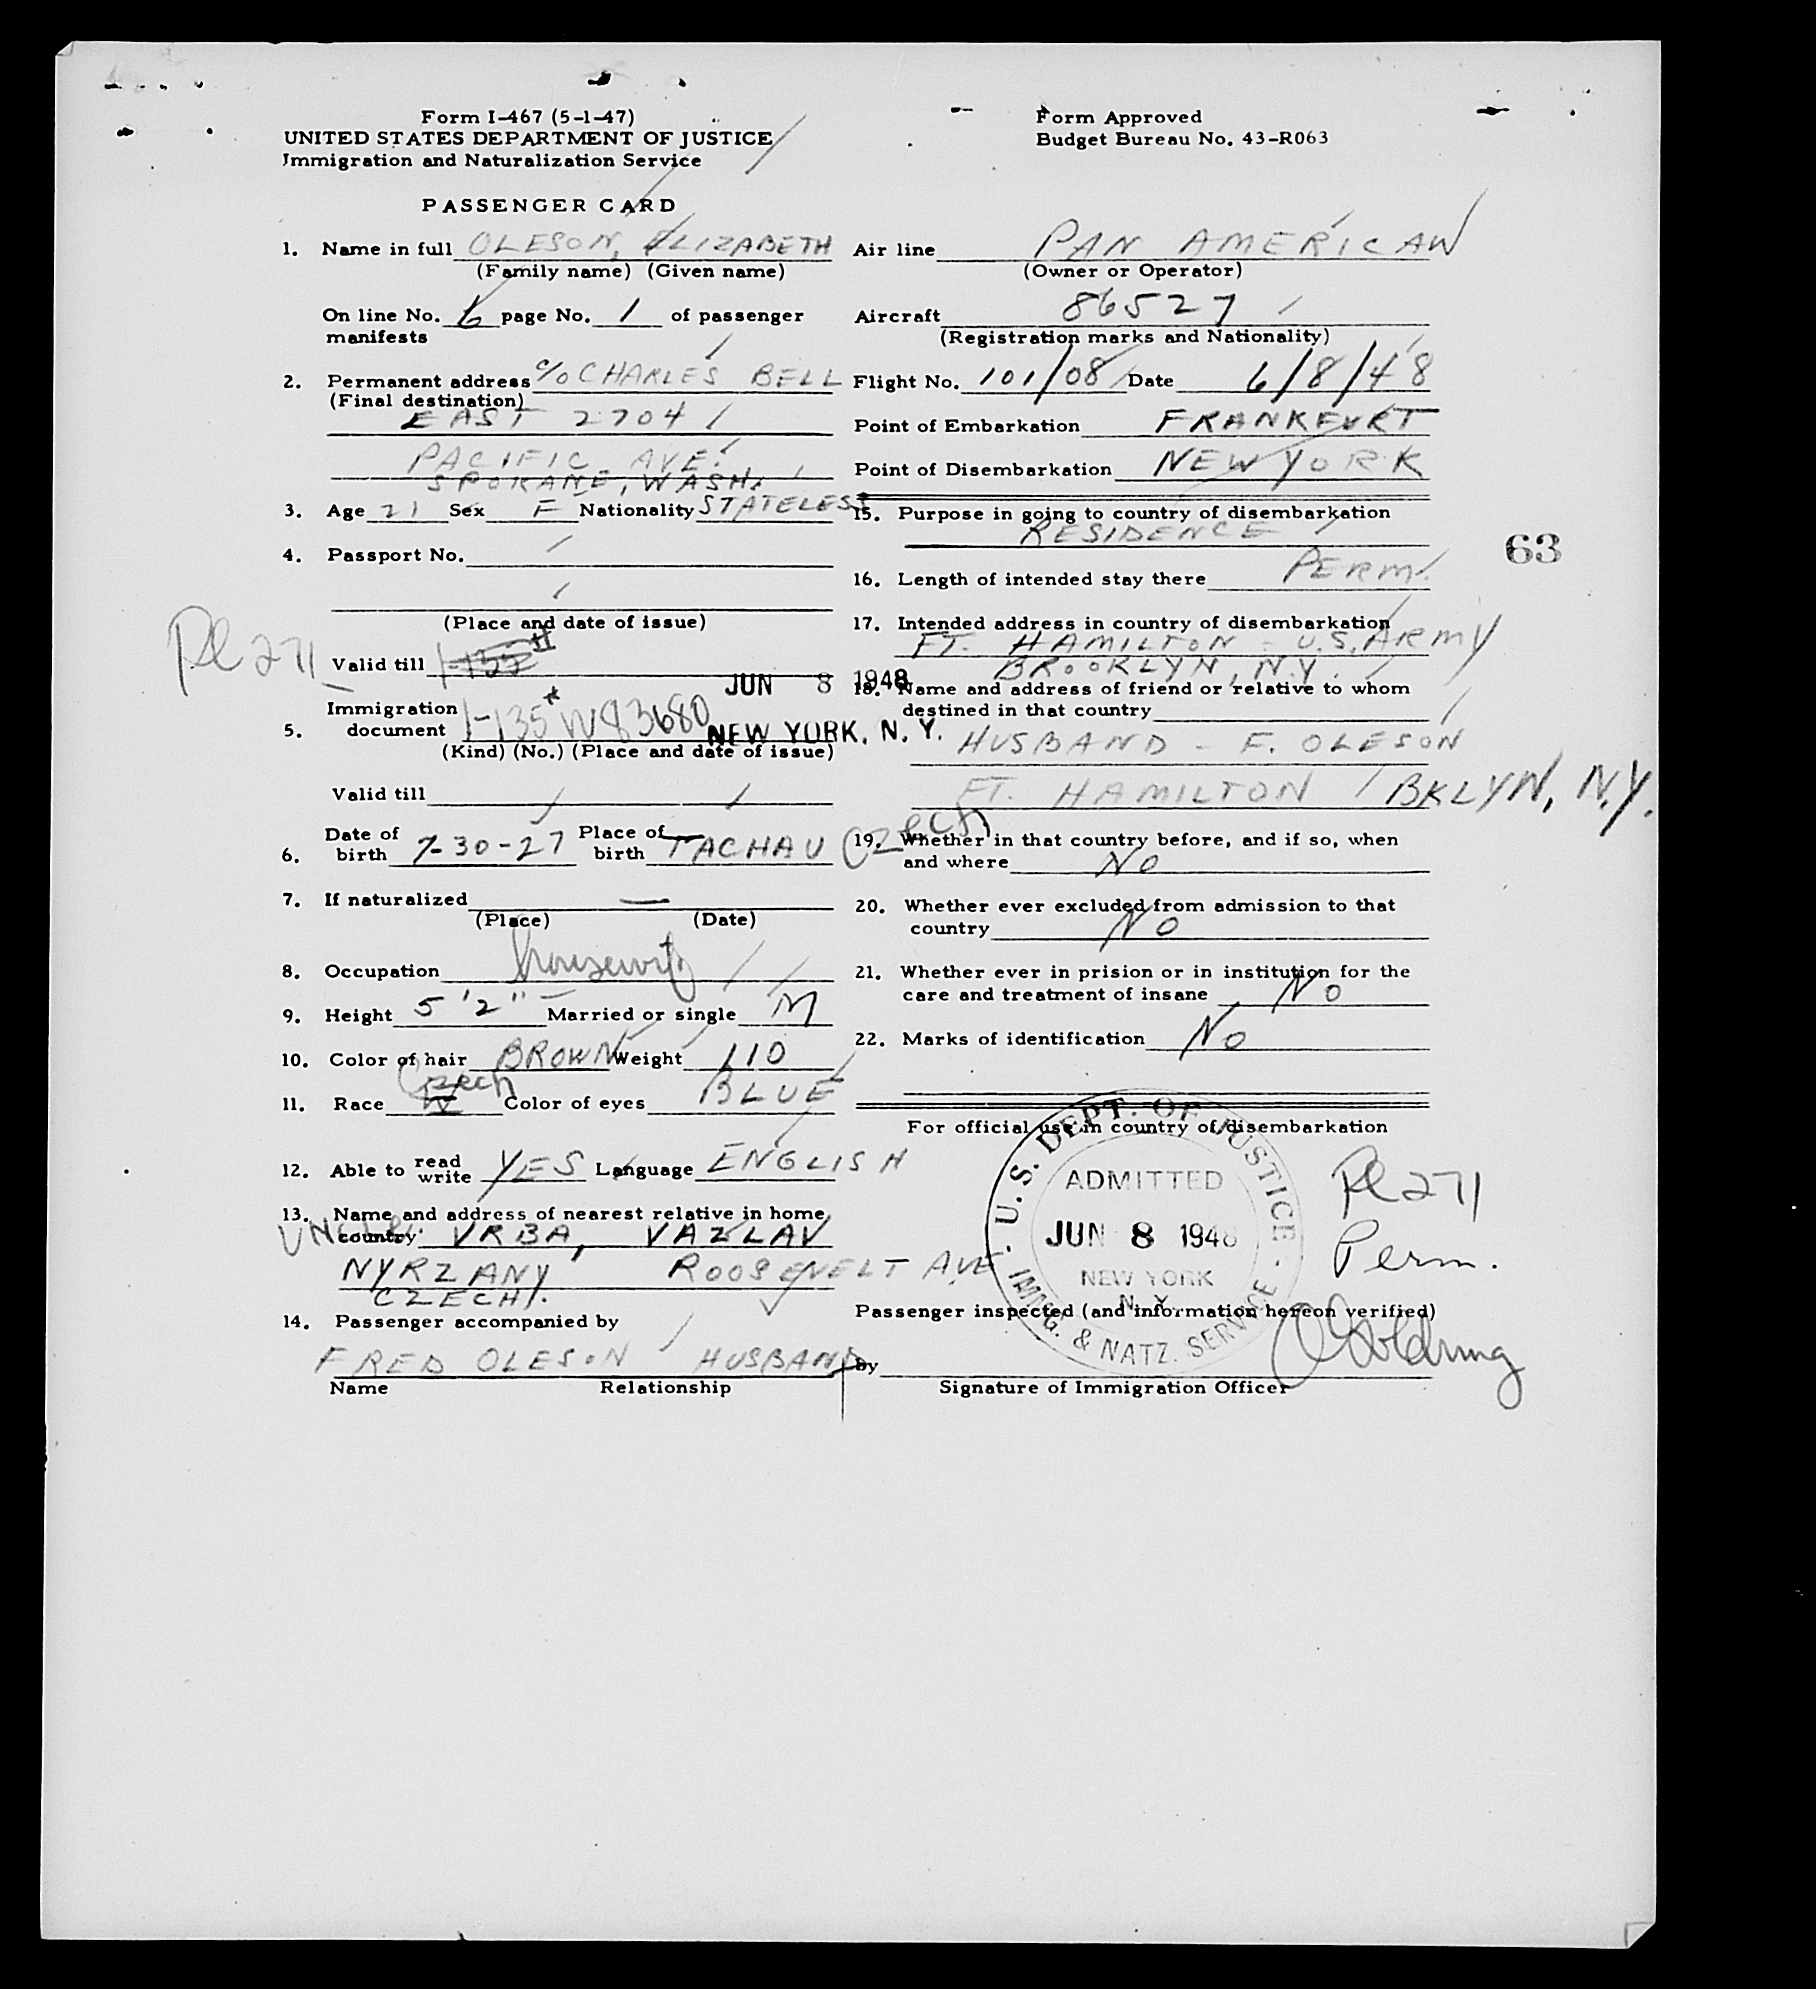 Form I-467 (5-1-47)
UNITED STATES DEPARTMENT OF JUSTICE
Immigration and Naturalization Service
Form Approved
Budget Bureau No. 43-R063
PASSENGER CARD
1. Name in full OLESON, ELIZABETH
(Family name) (Given name)
On line No. 6 page No. 1 of passenger
manifests
2. Permanent address c/o CHARLES BELL
(Final destination)
EAST 2704
PACIFIC AVE.
SPOKANE, WASH.
3. Age 21 Sex F Nationality STATELESS
4. Passport No.
(Place and date of issue)
Valid till
JUN 8 1948
5. Immigration
document I-135* W83680
NEW YORK, N. Y.
(Kind) (No.) (Place and date of issue)
Valid till
6. Date of birth 7-30-27 Place of birth TACHAU Czech
7. If naturalized —
(Place) (Date)
8. Occupation housewife
9. Height 5'2" Married or single M
10. Color of hair BROWN Weight 110
11. Race Czech W Color of eyes BLUE
12. Able to read write YES Language ENGLISH
13. Name and address of nearest relative in home
country UNCLE VRBA, VAZLAV
NYRZANY ROOSEVELT AVE
CZECH.
14. Passenger accompanied by
FRED OLESON HUSBAND
Name Relationship
Air line PAN AMERICAN
(Owner or Operator)
Aircraft 86527
(Registration marks and Nationality)
Flight No. 101/08 Date 6/8/48
Point of Embarkation FRANKFURT
Point of Disembarkation NEW YORK
15. Purpose in going to country of disembarkation
RESIDENCE
16. Length of intended stay there PERM.
17. Intended address in country of disembarkation
FT. HAMILTON - U.S. ARMY
BROOKLYN, N.Y.
18. Name and address of friend or relative to whom
destined in that country
HUSBAND - F. OLESON
FT. HAMILTON BKLYN, N.Y.
19. Whether in that country before, and if so, when
and where NO
20. Whether ever excluded from admission to that
country NO
21. Whether ever in prision or in institution for the
care and treatment of insane NO
22. Marks of identification NO
For official use in country of disembarkation
U.S. DEPT. OF JUSTICE
ADMITTED
JUN 8 1948
NEW YORK
N. Y.
IMMG. & NATZ. SERVICE
Pl 271
Perm.
Passenger inspected (and information hereon verified)
By
Signature of Immigration Officer
63
Pl 271